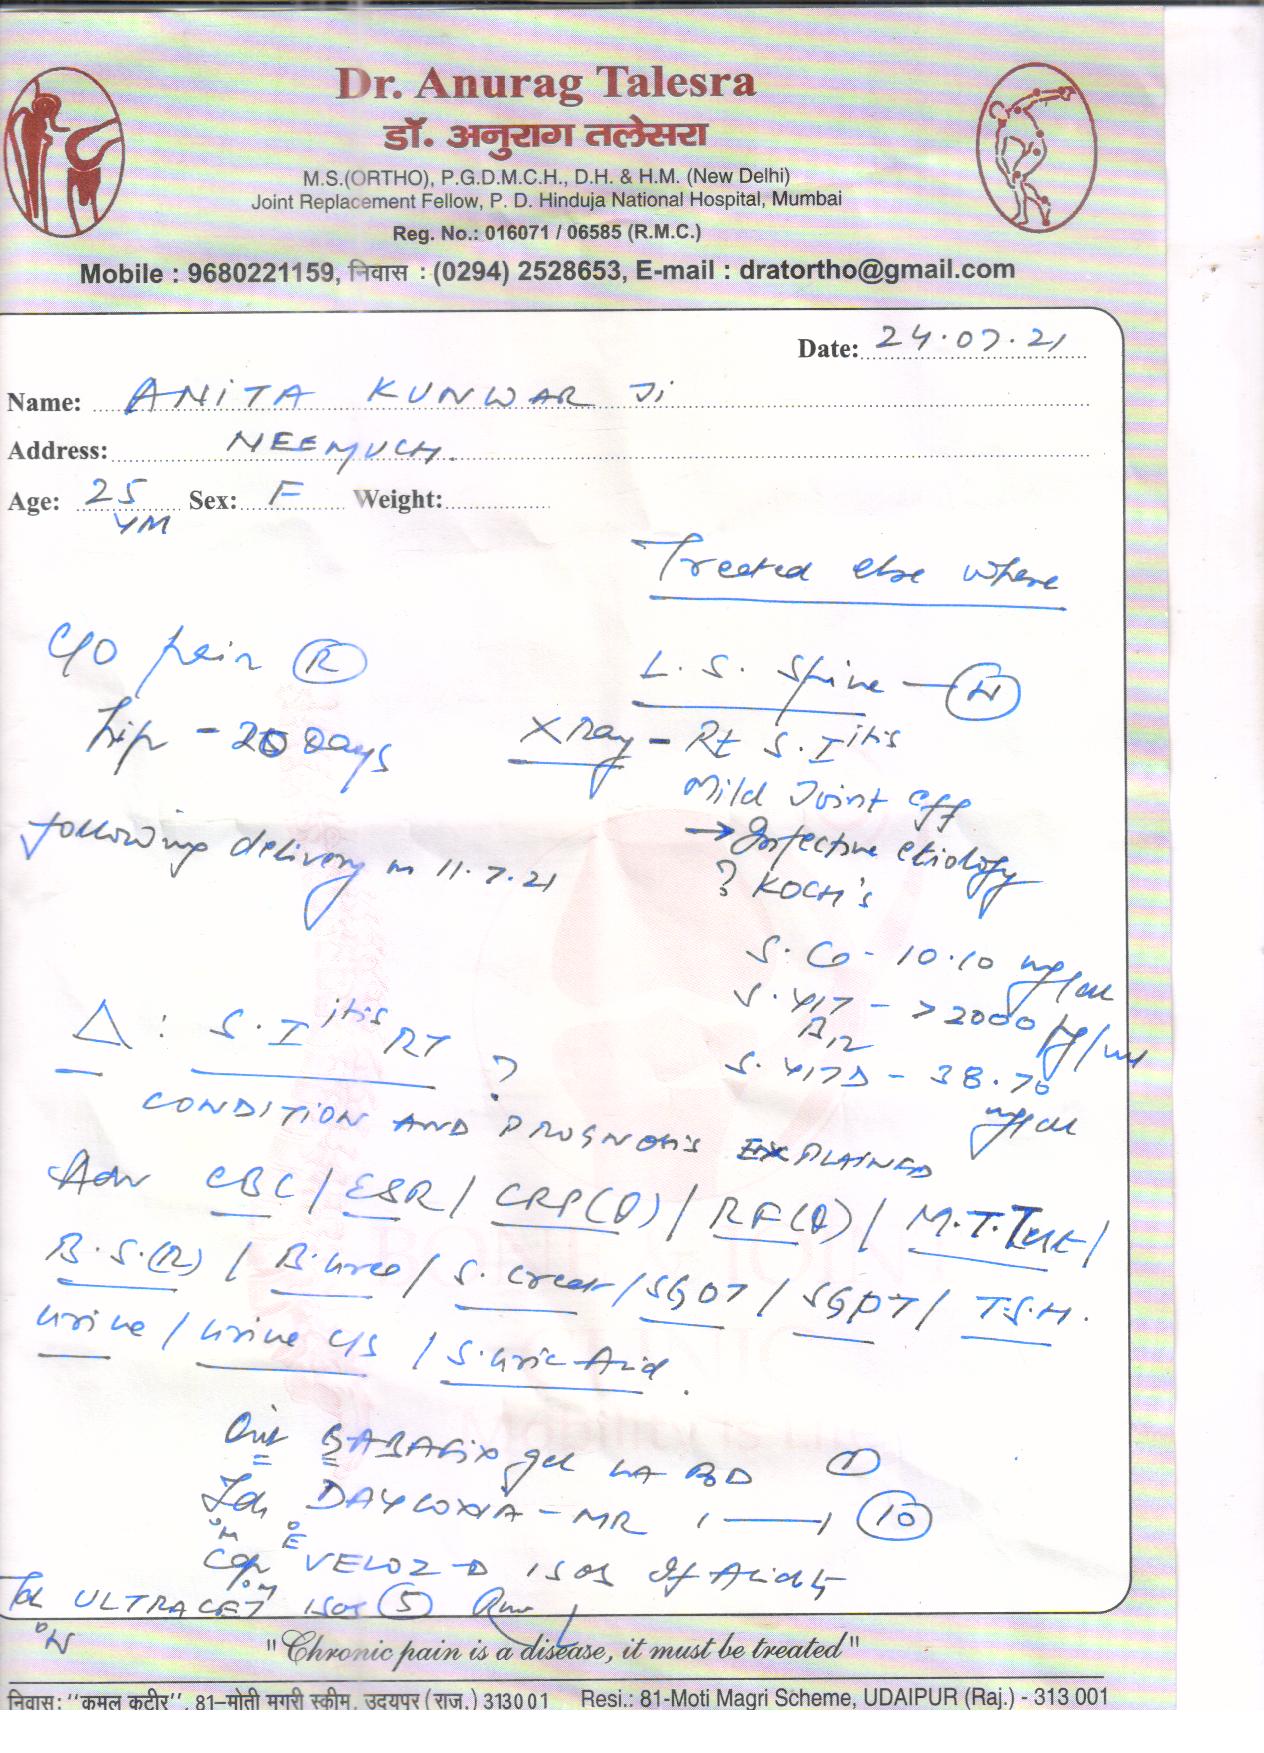 Dr. Anurag Talesra
डॉ. अनुराग तलेसरा
M.S.(ORTHO), P.G.D.M.C.H., D.H. & H.M. (New Delhi)
Joint Replacement Fellow, P. D. Hinduja National Hospital, Mumbai
Reg. No.: 016071 / 06585 (R.M.C.)
Mobile : 9680221159, निवास : (0294) 2528653, E-mail : dratortho@gmail.com
Date: 24.07.21
Name: ANITA KUNWAR Ji
Address: NEEMUCH.
Age: 25 Sex: F Weight:
Treated else where
C/O pain (R)
L. S. Spine — (N)
hip - 20 Days
X Ray - Rt S.I itis
Mild Joint eff
→ Infective etiology
following delivery on 11.7.21
? KOCH's
S. Ca - 10.10 mg/dl
S. VIT - >2000 pg/ml
B12
Δ : S.I itis RT ?
S. VIT D - 38.70
CONDITION AND PROGNOSIS EXPLAINED
Adv CBC / ESR / CRP(Q) / RF(Q) / M.T. Test /
B.S.(R) / B. Urea / S. Creat / SGOT / SGPT / T.S.H.
Urine / Urine C/S / S. Uric Acid.
Oint GABAFix gel LA BD (1)
Tab DAYCOXIA-MR 1 — 1 (10)
Cap VELOZ-D 1 SOS If Acidity
Tab ULTRACET 1 SOS (5)
"Chronic pain is a disease, it must be treated"
निवास: "कमल कुटीर", 81–मोती मगरी स्कीम, उदयपुर (राज.) 313001 Resi.: 81-Moti Magri Scheme, UDAIPUR (Raj.) - 313 001